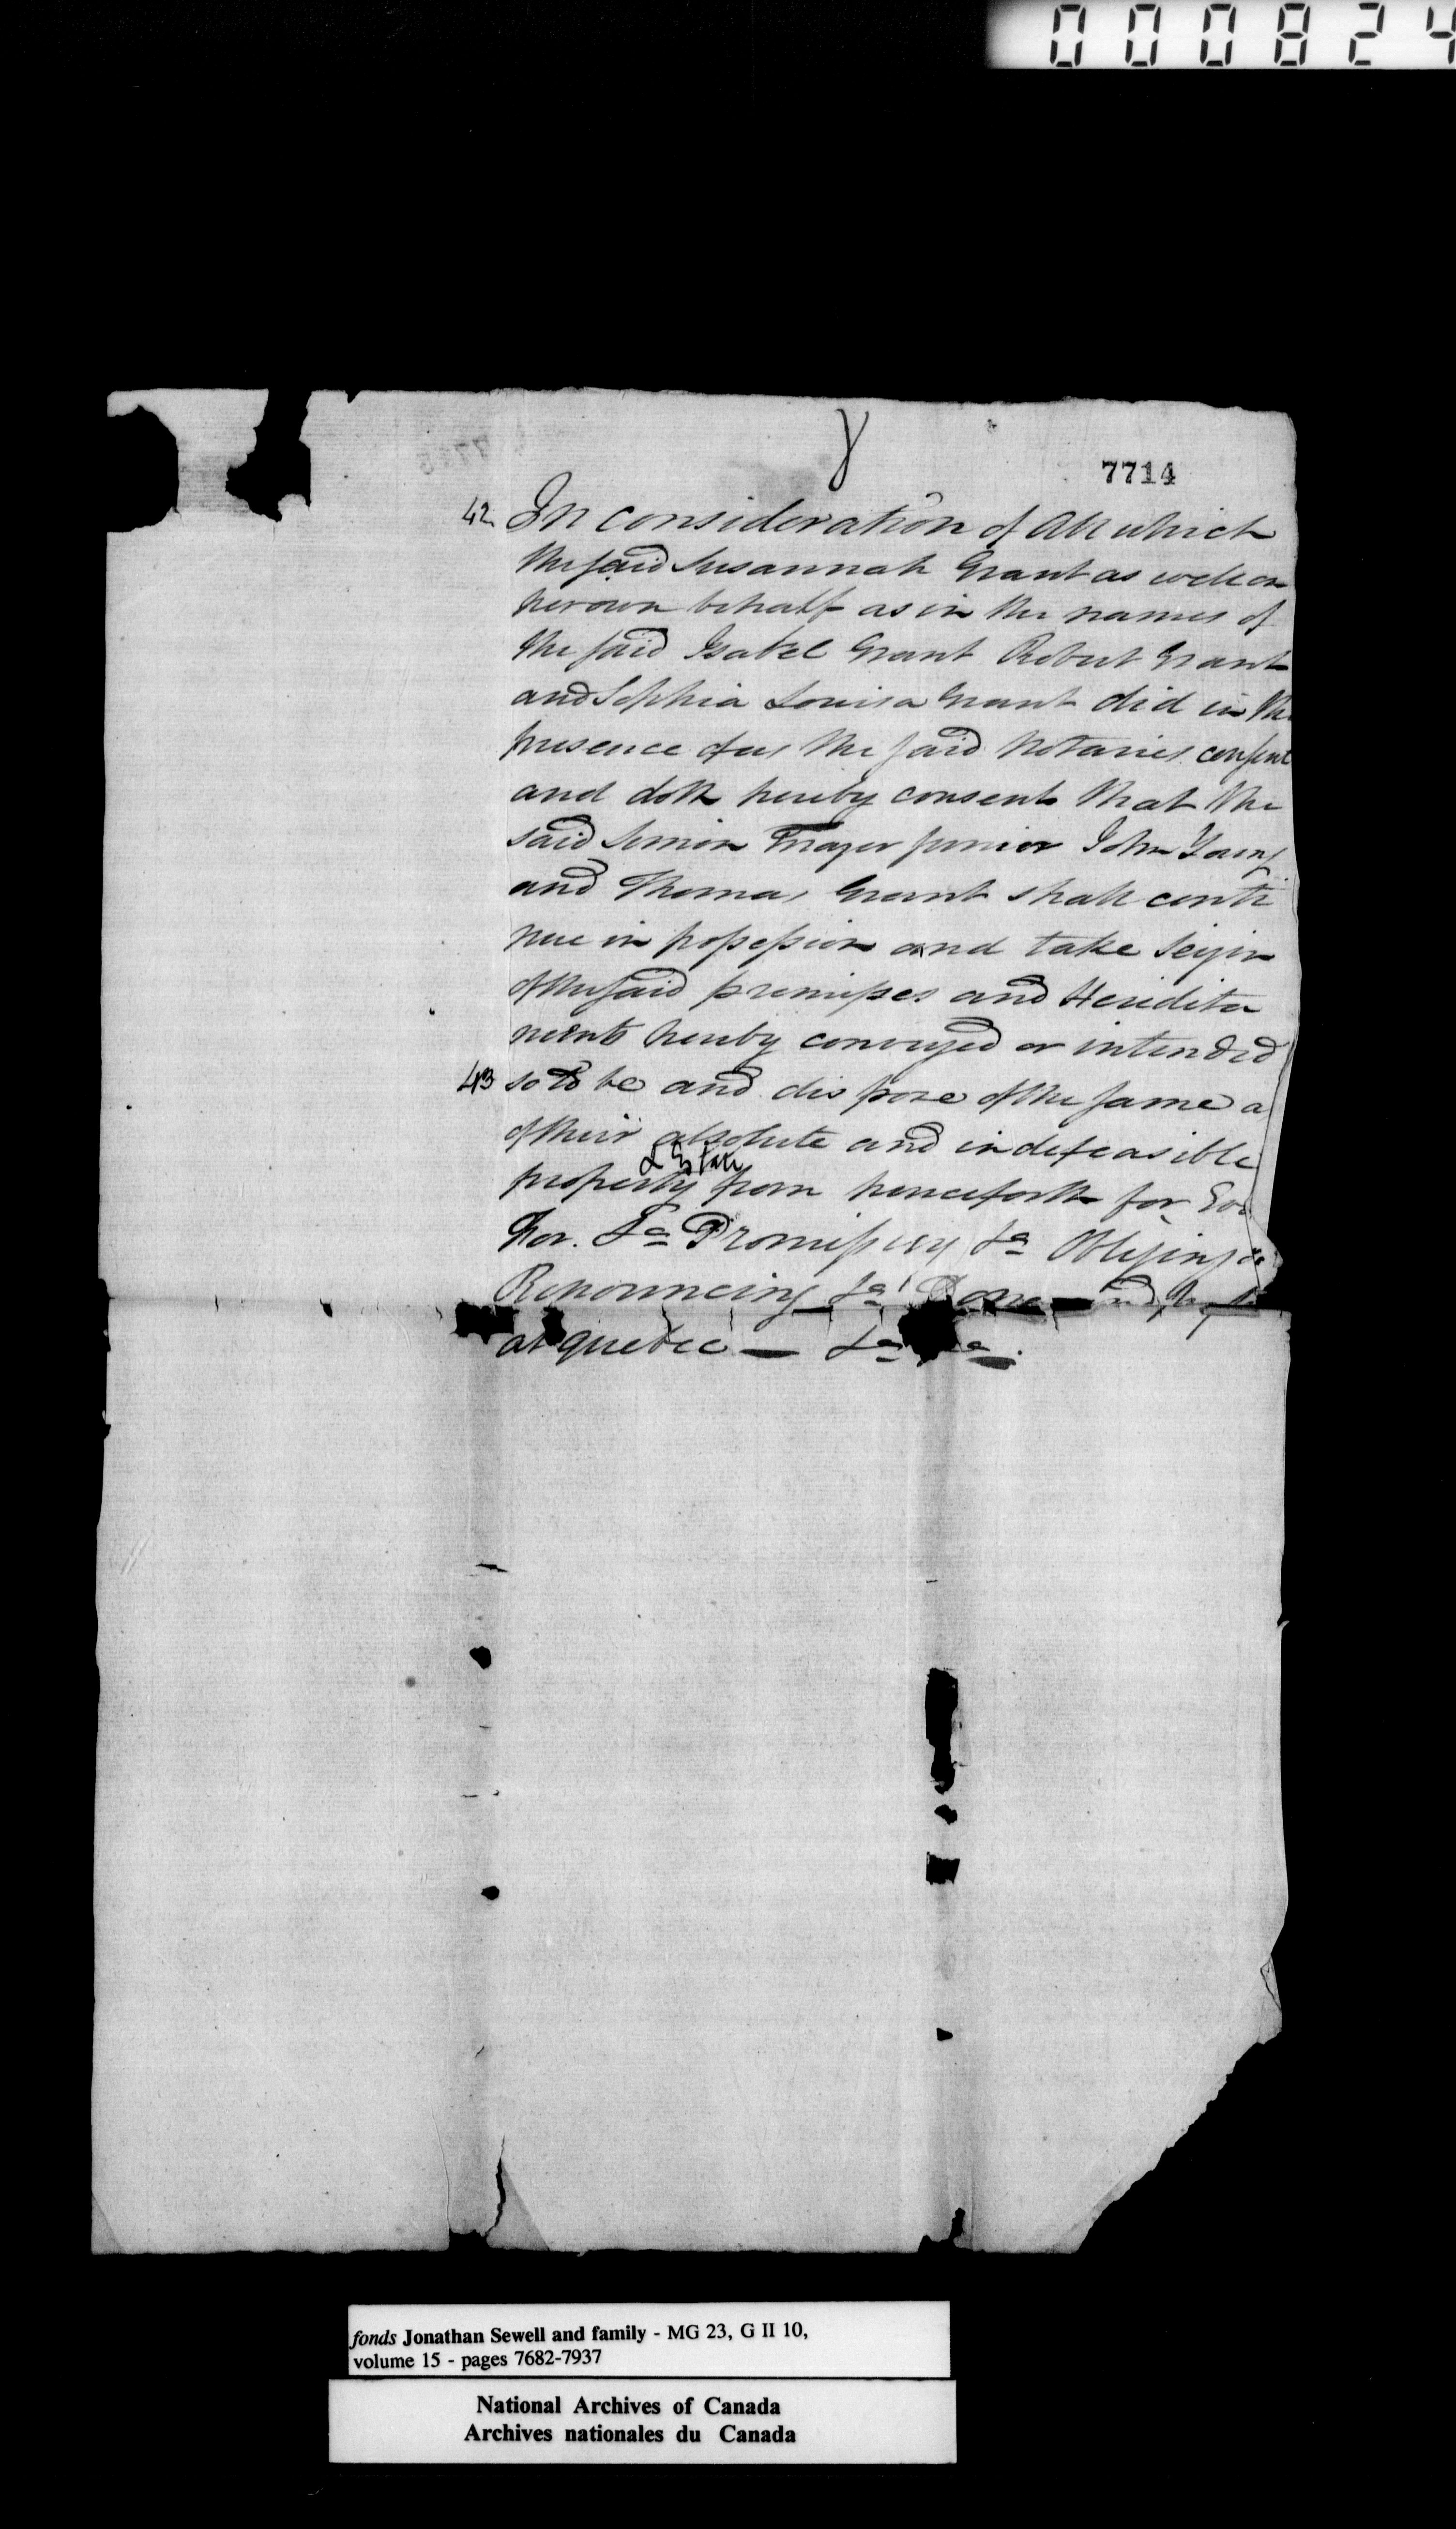 000824
8
7714
42 In consideration of All which
the said Susannah Grant as well on
her own behalf as in the names of
the said Isabel Grant Robert Grant
and Sophia Louisa Grant did in the
presence of us the said Notaries consent
and doth hereby consent that the
said Simon Frazer junior John Young
and Thomas Grant shall conti
nue in possession and take Seizin
of the said premisses and Heredita
ments hereby conveyed or intended
43 so to be and dispose of the same a
of their absolute and indefeasible
& Estate
property from henceforth for Ever
For. &a Promissing &a Obliging &
Renouncing &a Done and
at Quebec — &a &a.
fonds Jonathan Sewell and family - MG 23, G II 10,
volume 15 - pages 7682-7937
National Archives of Canada
Archives nationales du Canada